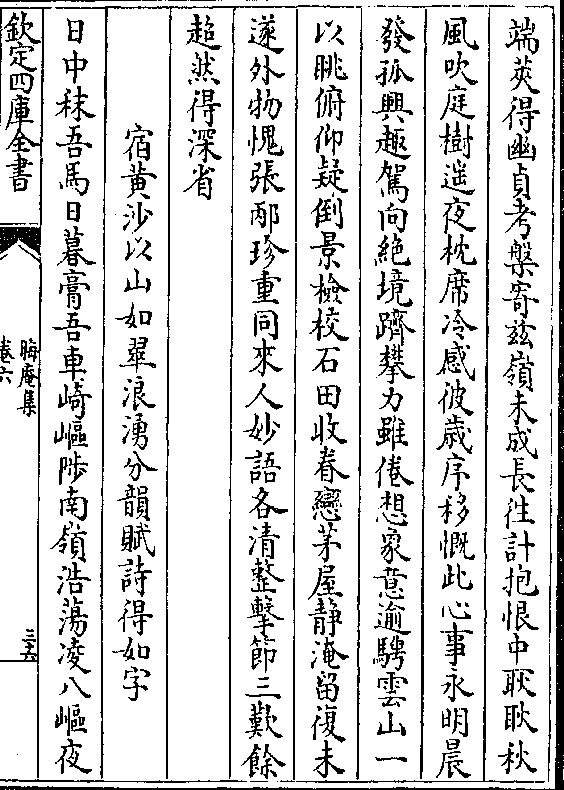 端莢得幽貞考槃寄兹嶺未成長徃計抱恨中耿耿秋
風吹庭樹遥夜枕席冷感彼歲序移慨此心事永明晨
發孤興趣駕向絶境躋攀力雖倦想象意逾騁雲山一
以眺俯仰疑倒景檢校石田收眷戀茅屋静淹留復未
遂外物愧張邴珍重同來人妙語各清整擊節三歎餘
超然得深省
宿黄沙以山如翠浪湧分韻賦詩得如字
日中秣吾馬日暮膏吾車崎嶇陟南嶺浩蕩凌八嶇夜
欽定四庫全書
晦庵集
卷六
三六